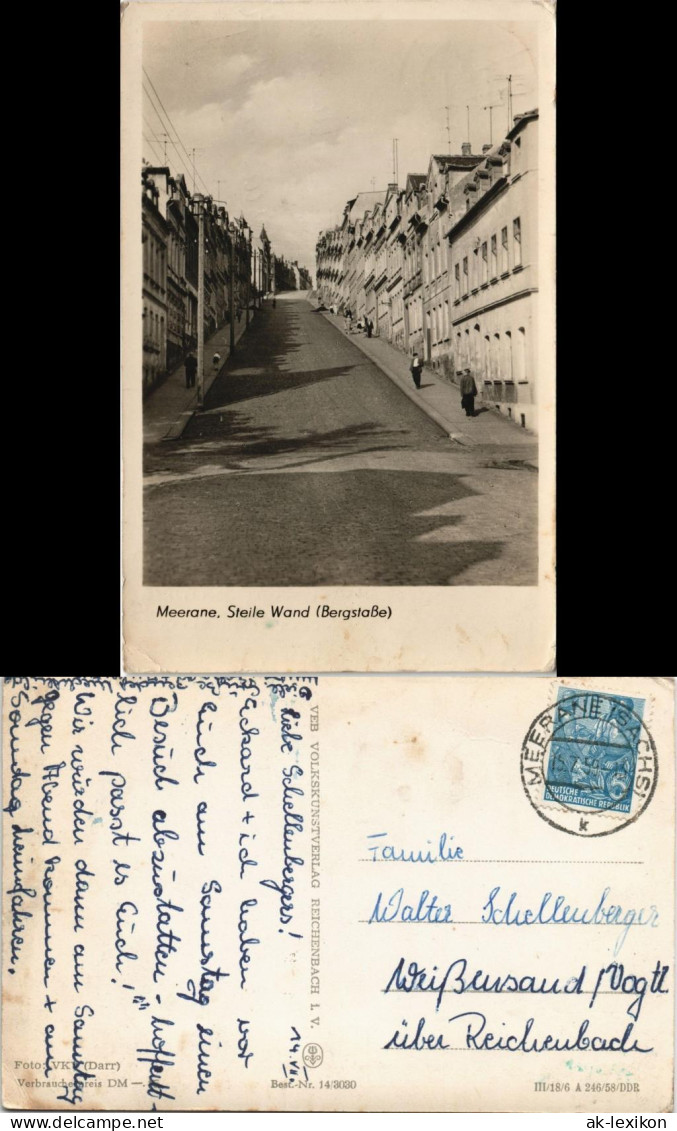 Meerane, Steile Wand (Bergstaße)
Liebe Schellenbergers!
14. VII.
Eckard + ich haben vor
Euch am Samstag einen
Besuch abzustatten - hoffent-
lich passt es Euch!
Wir würden dann am Samstag
gegen Abend kommen + am
Sonntag heimfahren.
VEB VOLKSKUNSTVERLAG REICHENBACH i. V.
MEERANE (SACHS)
k
DEUTSCHE
DEMOKRATISCHE REPUBLIK
5
Familie
Walter Schellenberger
Weißensand/Vogtl
über Reichenbach
Foto: VKV (Darr)
Verbraucherpreis DM —.
Best.-Nr. 14/3030
III/18/6 A 246/58/DDR
ak-lexikon